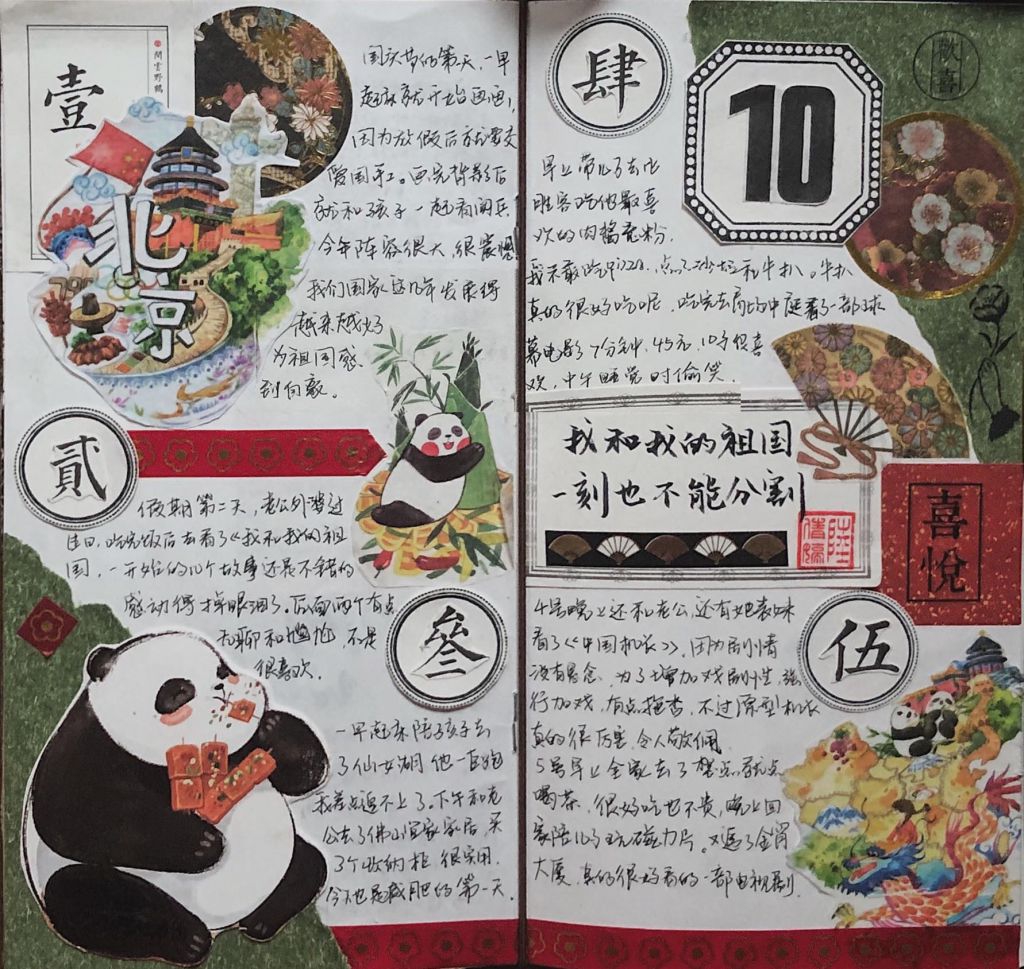 壹
閒雲野鶴
北京
国庆节的第一天,一早
起床就开始画画,
因为放假后就要交
爱国手工。画完背影后
就和孩子一起看阅兵
今年阵容很大,很震憾!
我们国家这几年发展得
越来越好
为祖国感
到自豪。
貳
假期第二天,老公外婆过
生日,吃完饭后去看了《我和我的祖
国,一开始的几个故事还是不错的
感动得掉眼泪了。后面两个有点
无聊和尴尬,不是
很喜欢。
叁
一早起来陪孩子去
了仙女湖 他一直跑
我差点追不上了。下午和老
公去了佛山宜家家居,买
了个收纳柜 很实用
今天也是减肥的第一天。
肆
10
歡喜
早上带儿子去必
胜客吃他最喜
欢的肉酱意粉.
我不敢吃pizza.点了沙拉和牛扒。牛扒
真的很好吃呢,吃完去商场中庭看了一部球
幕电影了7分钟,45元,10仔很喜
欢,中午睡觉时偷笑
我和我的祖国
一刻也不能分割
喜悅
伍
4号晚上还和老公,还有她表妹
看了《中国机长》,因为剧情
没有悬念,为了增加戏剧性,强
行加戏,有点拖沓,不过原型机长
真的很厉害,令人敬佩
5号早上全家去了 点就点
喝茶,很好吃也不贵,晚上回
家陪儿子玩磁力片。又追了金宵
大厦,真的很好看的一部电视剧.